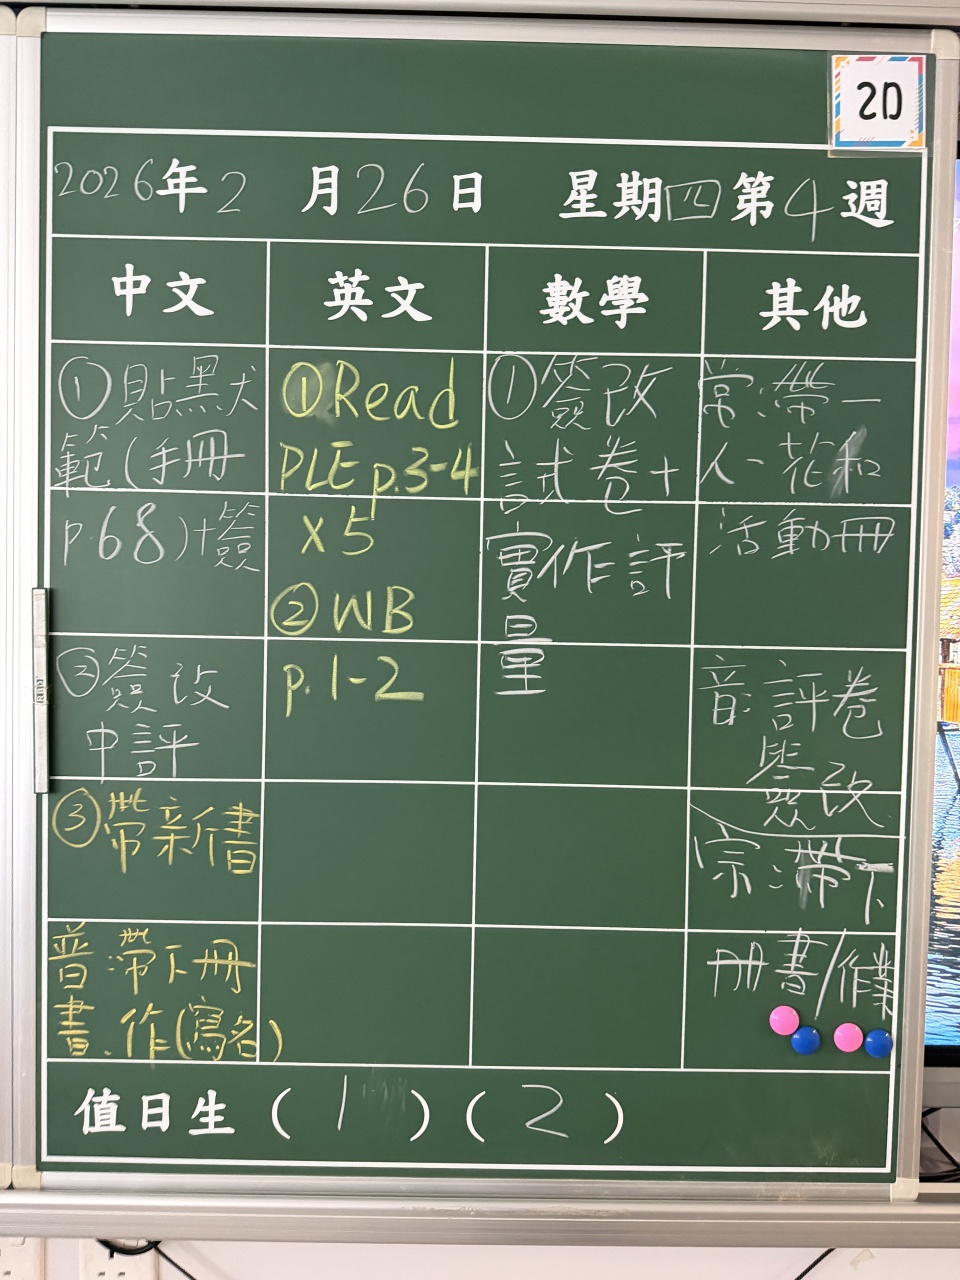 2D
2026年2月26日 星期四第4週
中文
英文
數學
其他
①貼默犬
範(手冊
p.68)+簽
②簽改
中評
③帶新書
普:帶下冊
書、作(寫名)
①Read
PLE p.3-4
x5
②WB
p.1-2
①簽改
試卷+
實作評
量
常:帶一
人一花和
活動冊
音:評卷
簽改
宗:帶下
冊書/作業
值日生(1)(2)